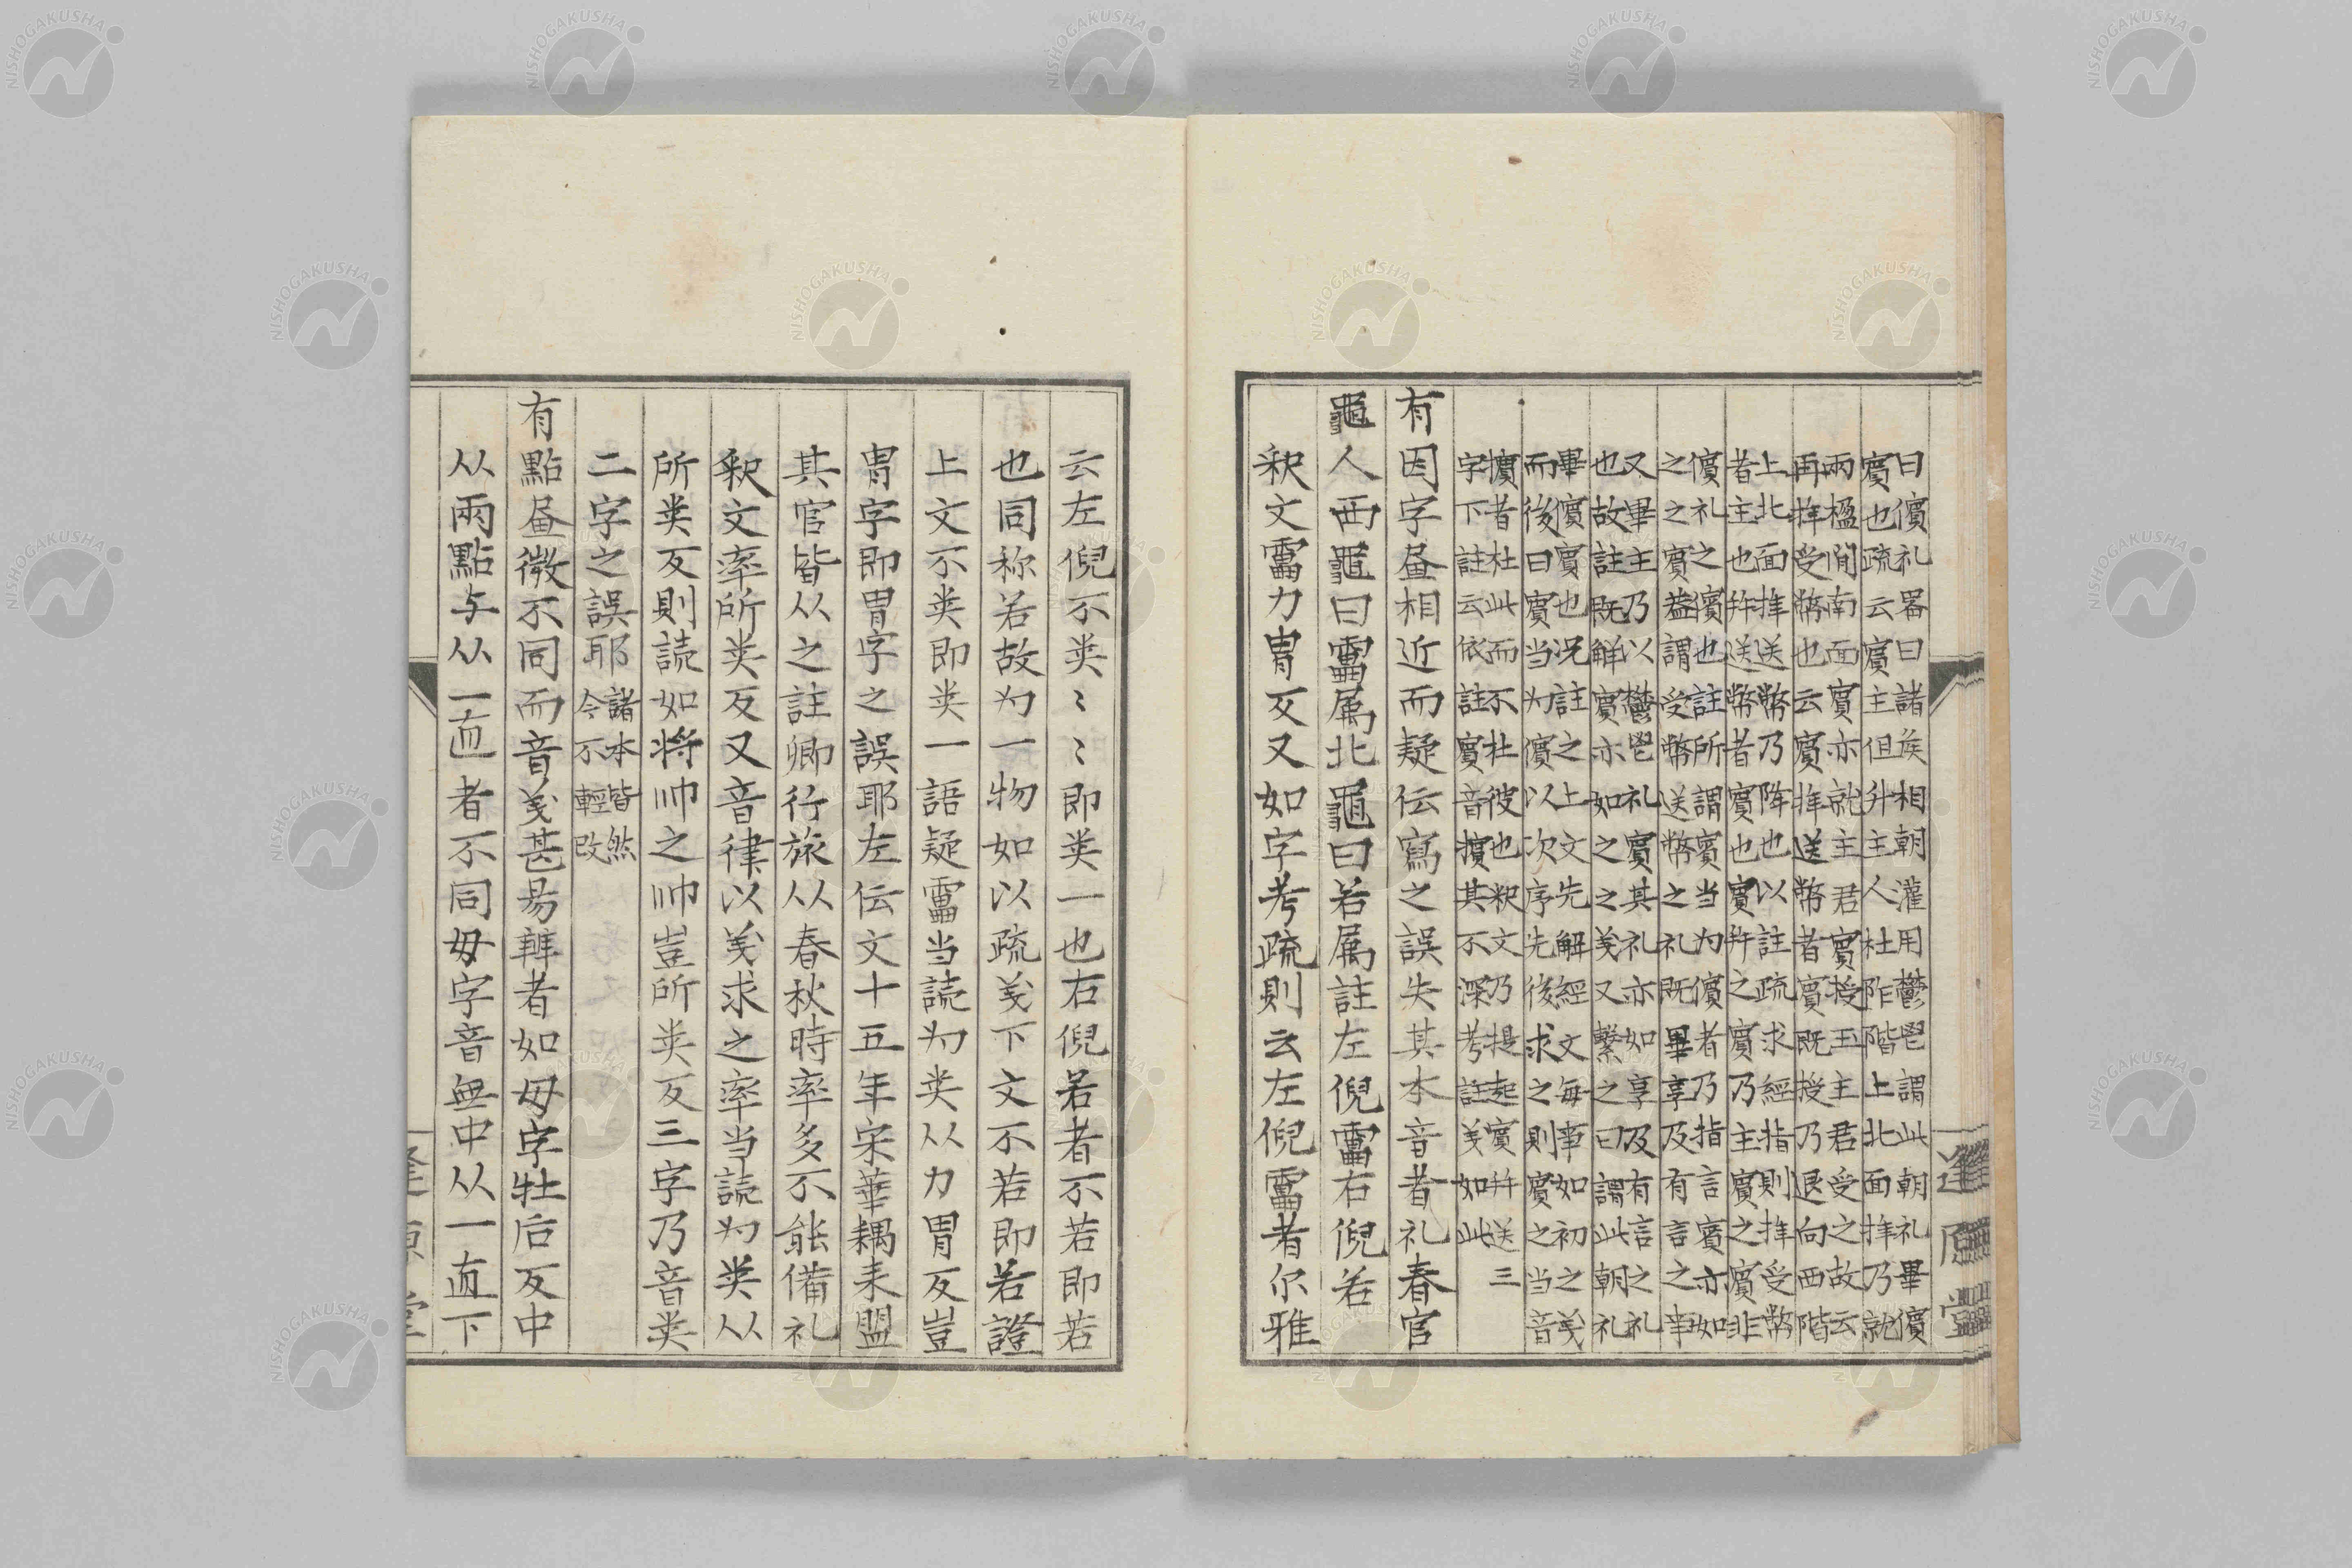 曰儐礼畧曰諸侯相朝灌用鬱鬯謂此朝礼畢儐
賓也疏云賓主但升主人杜阼階上北面拝乃就
兩楹間南面賓亦就主君賓授玉主君受之故云
再拝受幣也云賓拝送幣者賓既授乃退向西階
上北面拝送幣乃降也以註疏求經指則拝受幣
者主也幷送幣者賓也賓幷之賓乃主賓之賓非
儐礼之儐也註所謂賓当为儐者乃指言賓亦如
之之賓葢謂受幣送幣之礼既畢享及有言之亊
又畢主乃以鬱鬯礼賓其礼亦如享及有言之礼
也故註既觧賓亦如之之義又繫之曰謂此朝礼
畢儐賓也况註之上文先解經文每亊如初之義
而後曰賓当为儐以次序先後求之則賓之当音
擯者杜此而不杜彼也釈文乃提起賓幷送三
字下註云依註賓音擯其不深考註義如此
有因字昼相近而疑伝寫之誤失其本音者礼春官
龜人西龜曰靁属北龜曰若属註左倪靁右倪若
釈文靁力冑反又如字考疏則云左倪靁者尓雅
云左倪不类〻〻即类一也右倪若者不若即若
也同称若故为一物如以疏義下文不若即若證
上文不类即类一語疑靁当読为类从力冑反豈
冑字即胃字之誤耶左伝文十五年宋華耦来盟
其官皆从之註卿行旅从春秋時率多不能備礼
釈文率所类反又音律以義求之率当読为类从
所类反則読如将帅之帅豈所类反三字乃音类
二字之誤耶諸本皆然今不輕改
有點昼微不同而音義甚易辨者如毋字牡后反中
从兩點与从一直者不同毋字音無中从一直下
逢原堂